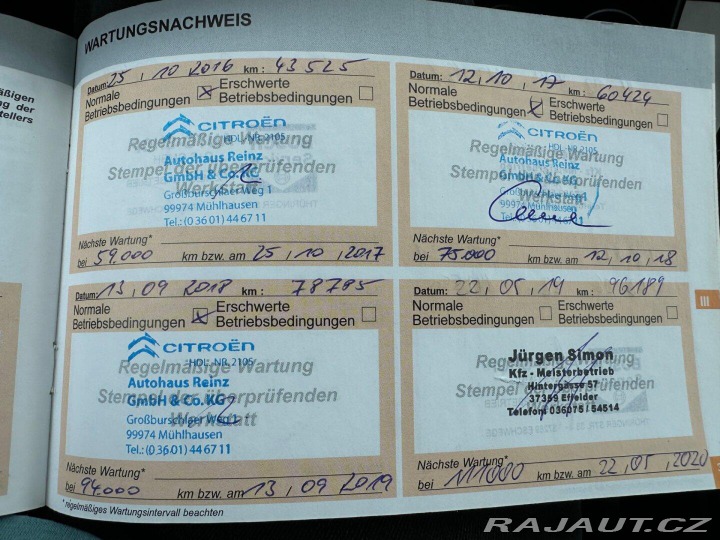 WARTUNGSNACHWEIS
Datum: 25, 10 2016 km: 43525
Normale
Betriebsbedingungen
Erschwerte
Betriebsbedingungen
CITROËN
HDL.-NR. 2105
Regelmäßige Wartung
Autohaus Reinz
Stempel der überprüfenden
GmbH & Co. KG
Werkstatt
Großburschlaer Weg 1
99974 Mühlhausen
Tel.: (0 36 01) 44 67 11
Nächste Wartung*
bei 59.000 km bzw. am 25, 10, 2017
Datum: 12, 10, 17 km: 60424
Normale
Betriebsbedingungen
Erschwerte
Betriebsbedingungen
CITROËN
HDL.-NR. 2105
Regelmäßige Wartung
Autohaus Reinz
Stempel der überprüfenden
GmbH & Co. KG
Werkstatt
99974 Mühlhausen
Nächste Wartung*
bei 75.000 km bzw. am 12, 10, 18
Datum: 13, 09 2018 km: 78795
Normale
Betriebsbedingungen
Erschwerte
Betriebsbedingungen
CITROËN
HDL.-NR. 2105
Regelmäßige Wartung
Autohaus Reinz
Stempel der überprüfenden
GmbH & Co. KG
Werkstatt
Großburschlaer Weg 1
99974 Mühlhausen
Tel.: (0 36 01) 44 67 11
Nächste Wartung*
bei 94.000 km bzw. am 13, 09 2019
Datum: 22, 05, 19 km: 96189
Normale
Betriebsbedingungen
Erschwerte
Betriebsbedingungen
Jürgen Simon
Regelmäßige Wartung
Kfz - Meisterbetrieb
Stempel der überprüfenden
Hintergasse 57
37359 Effelder
Werkstatt
Telefon: 036075 / 54514
Nächste Wartung*
bei 111000 km bzw. am 22, 05, 2020
*regelmäßiges Wartungsintervall beachten
III
RAJAUT.CZ